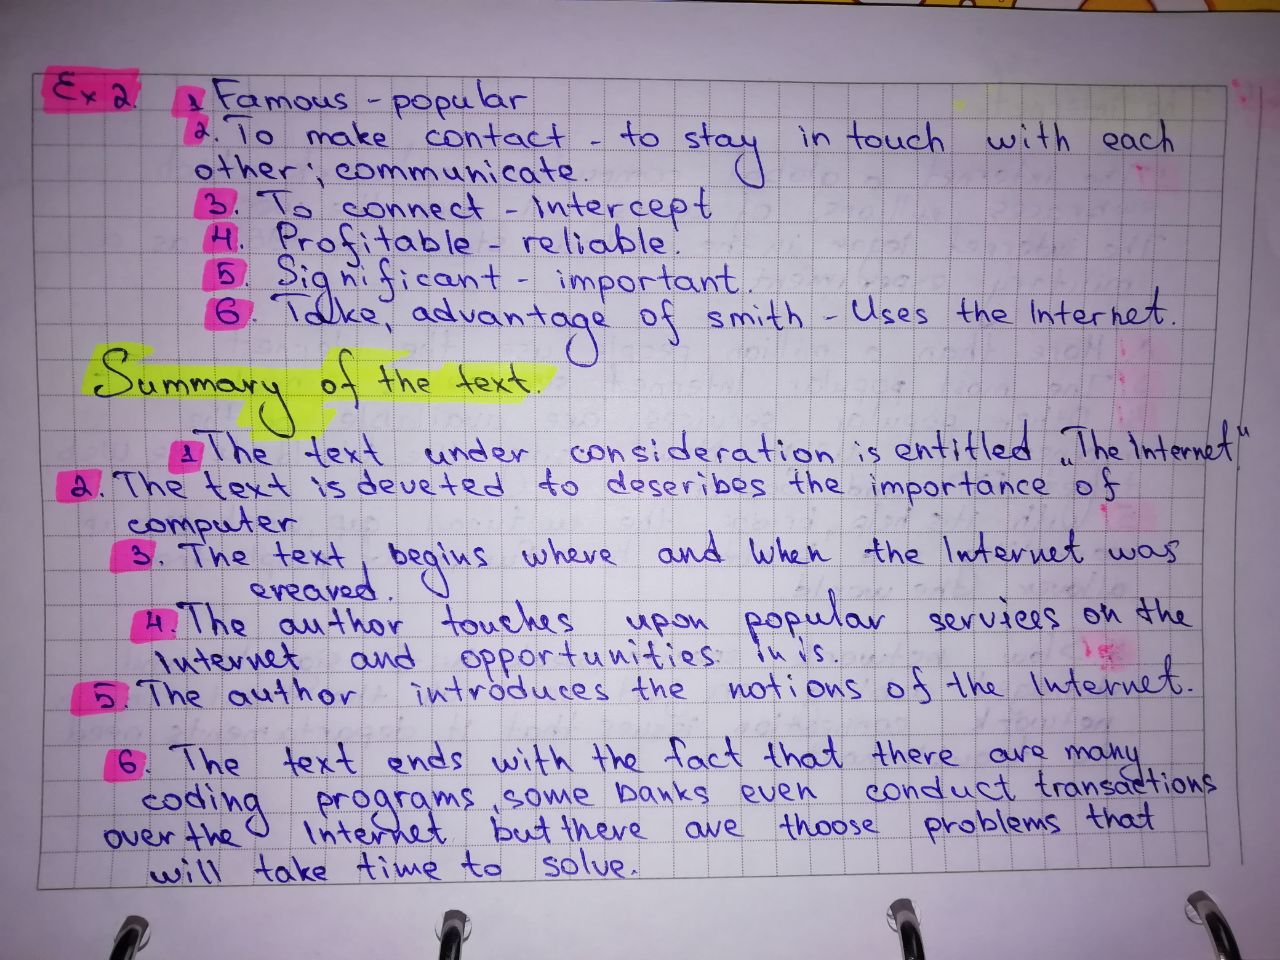 Ex 2. 1 Famous - popular
2. To make contact - to stay in touch with each
other; communicate.
3. To connect - intercept
4. Profitable - reliable.
5. Significant - important.
6. Take, advantage of smith - Uses the Internet.
Summary of the text.
1 The text under consideration is entitled „The Internet"
2. The text is deveted to deseribes the importance of
computer
3. The text, begins where and when the Internet was
ereaved.
4. The author touches upon popular services on the
Internet and opportunities in is.
5. The author introduces the notions of the Internet.
6. The text ends with the fact that there are many
coding programs, some banks even conduct transactions
over the Internet but there are thoose problems that
will take time to solve.